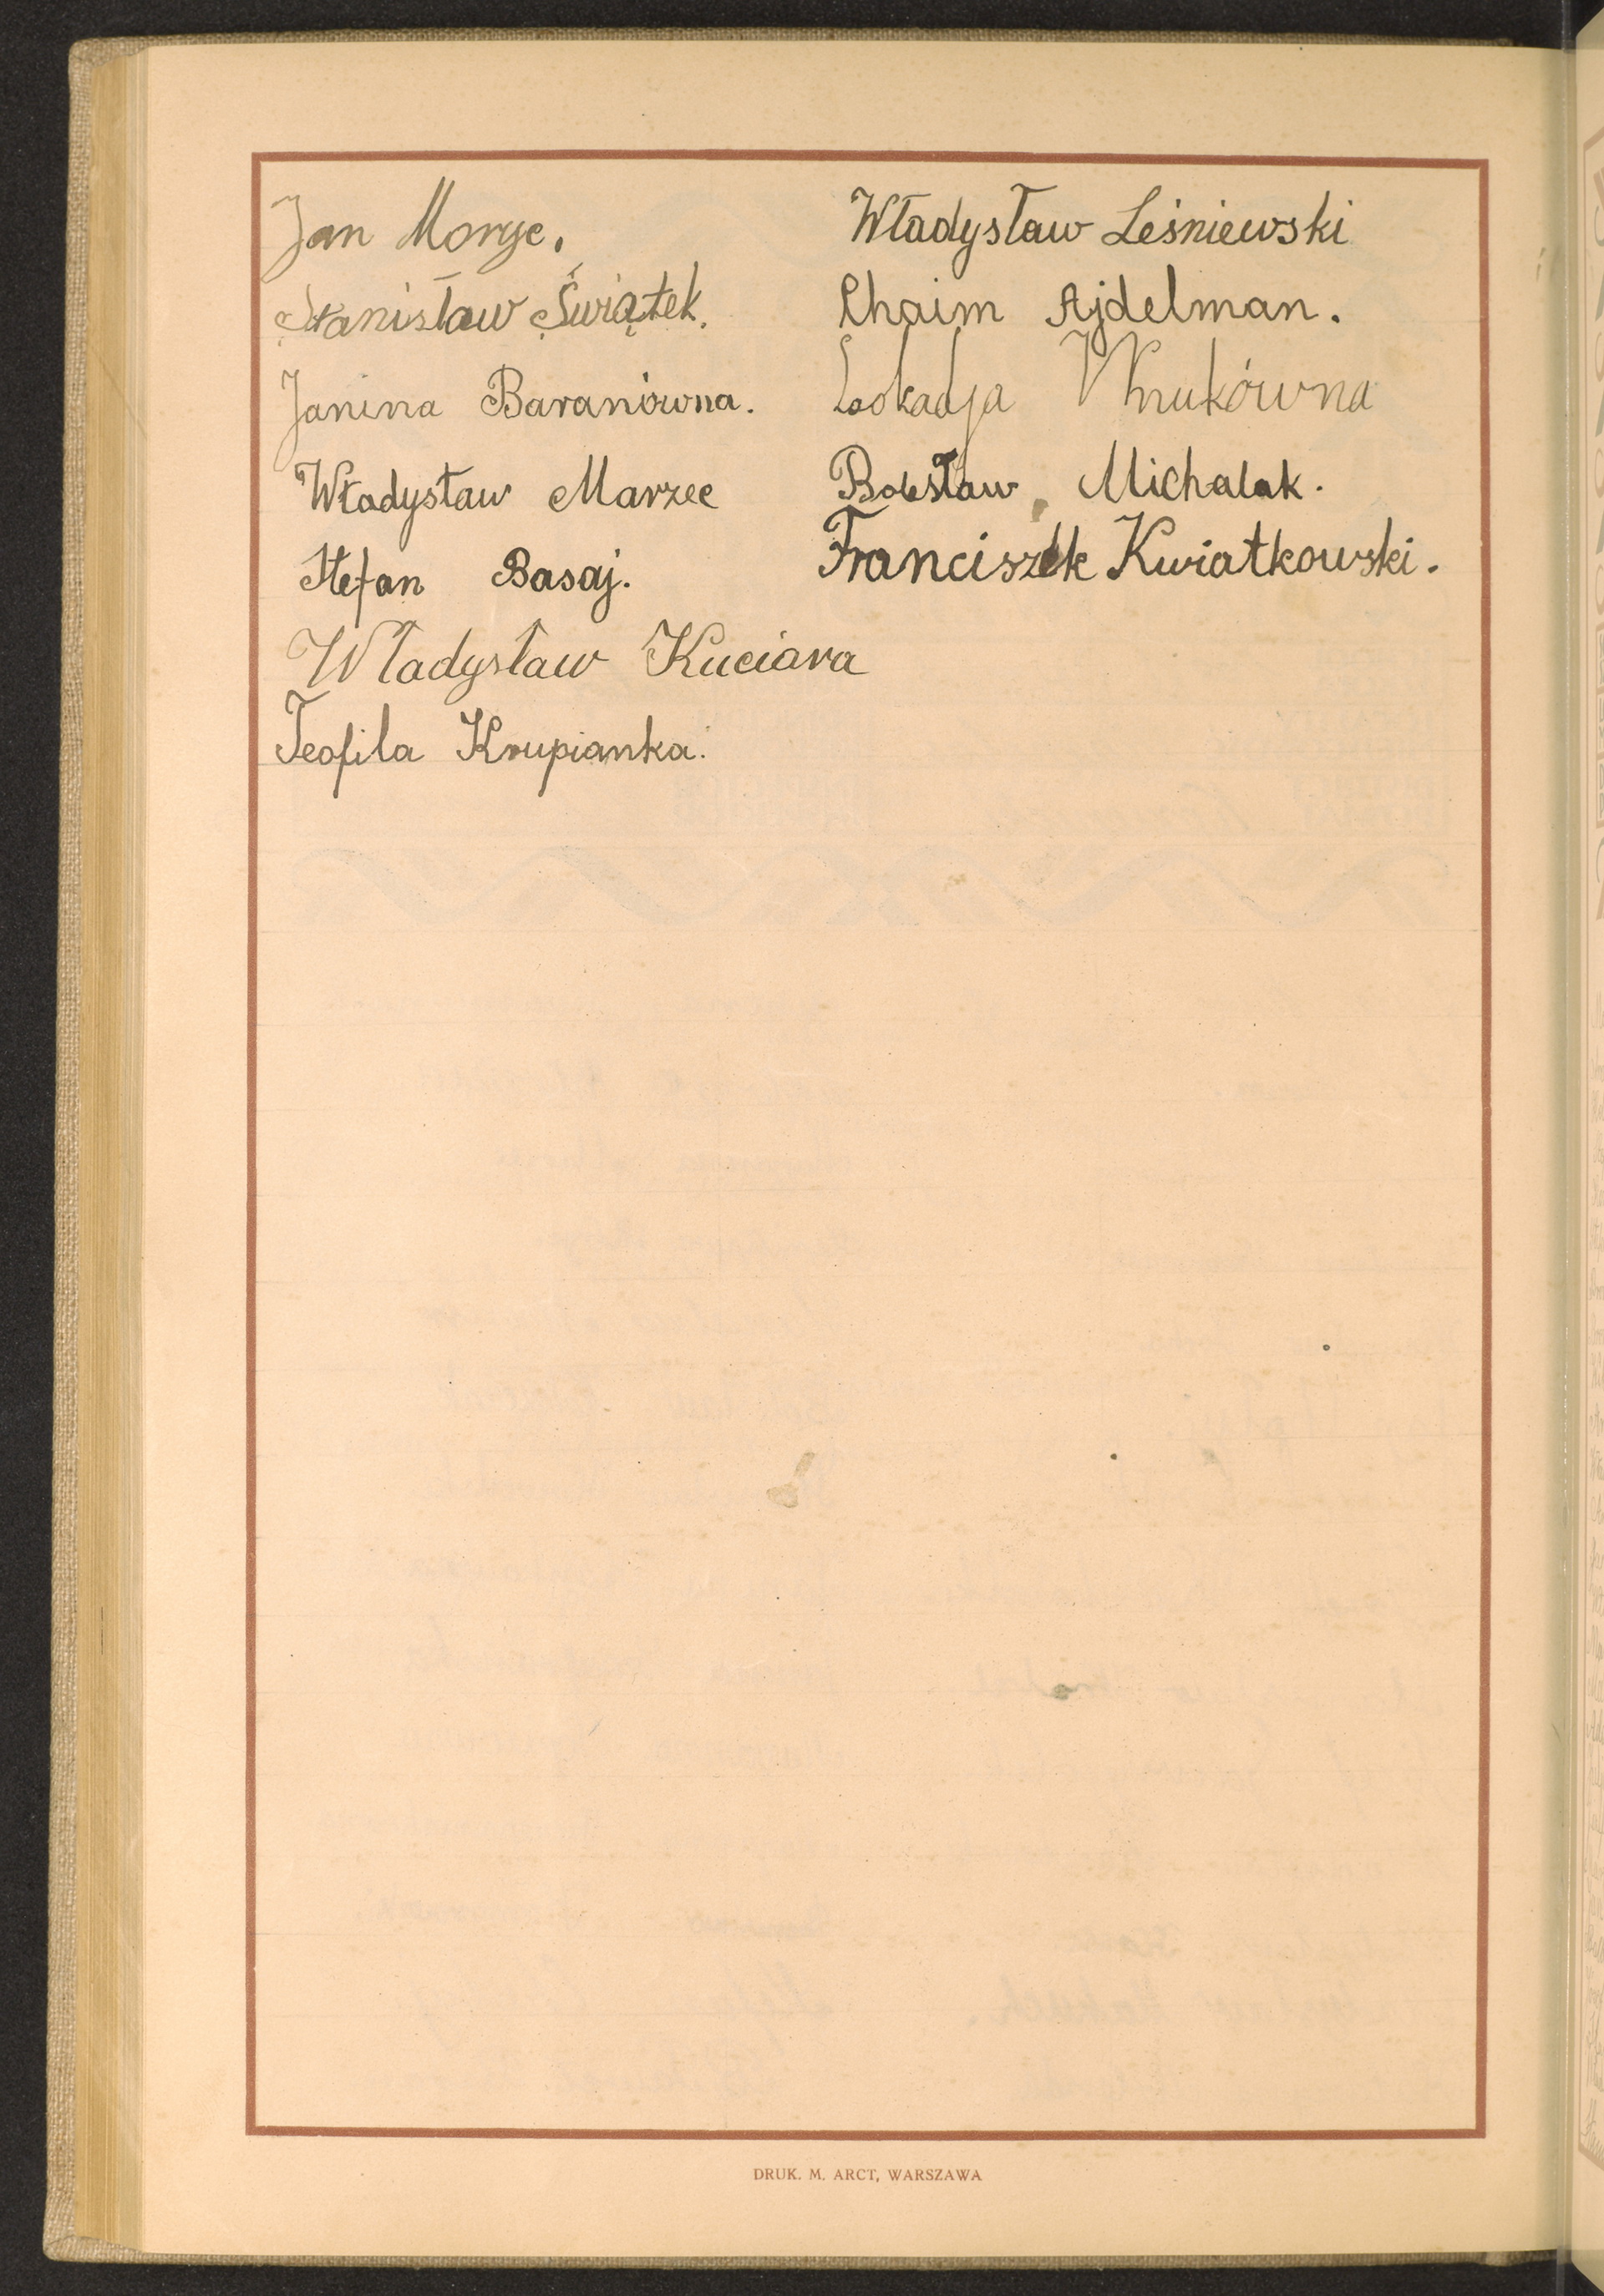 Jan Moryc.
Stanisław Świątek.
Janina Baranówna.
Władysław Marzec
Stefan Basaj.
Władysław Kuciara
Teofila Krupianka.
Władysław Leśniewski
Chaim Ajdelman.
Lokadja Wnukówna
Bolesław Michalak.
Franciszek Kwiatkowski.
DRUK. M. ARCT, WARSZAWA